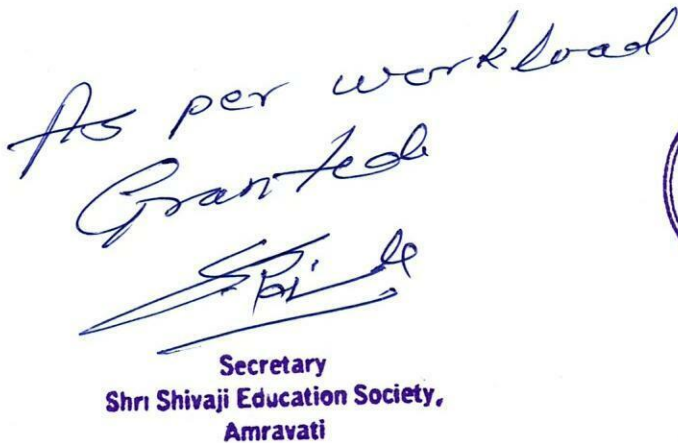 As per workload
Granted
Secretary
Shri Shivaji Education Society,
Amravati